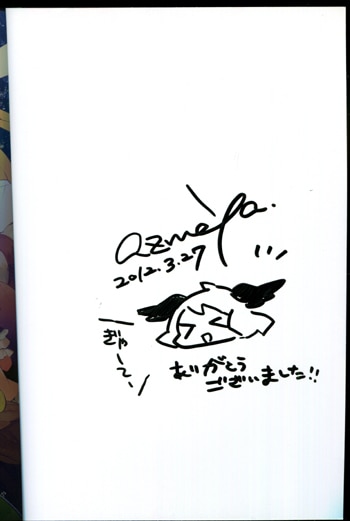 azmaya.
2012.3.27
ぎゃーてー
ありがとう
ございました!!